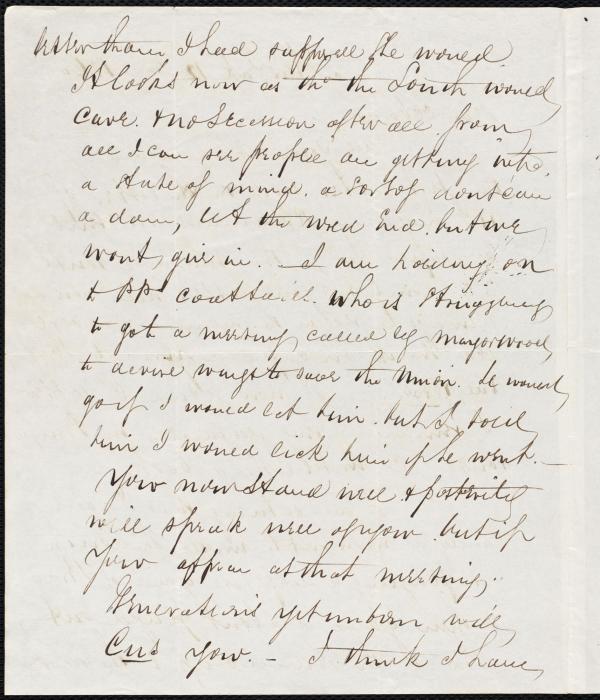 better than I had supposed he would
It looks now as tho' the South would
Cave. & no Secession after all. from
all I can see people are getting into
a state of mind. a sort of dont care
a dam, let the word End. but we
wont give in. — I am holding on
to PP' coattails. who is struggling
to go to a meeting called by Mayor Wood,
to devise ways to save the Union. he would
go if I would let him. but I told
him I would lick him if he went. —
You now stand well & posterity
will speak well of you. but if
you appear at that meeting.
Generations yet unborn will
Cus you. — I think I have